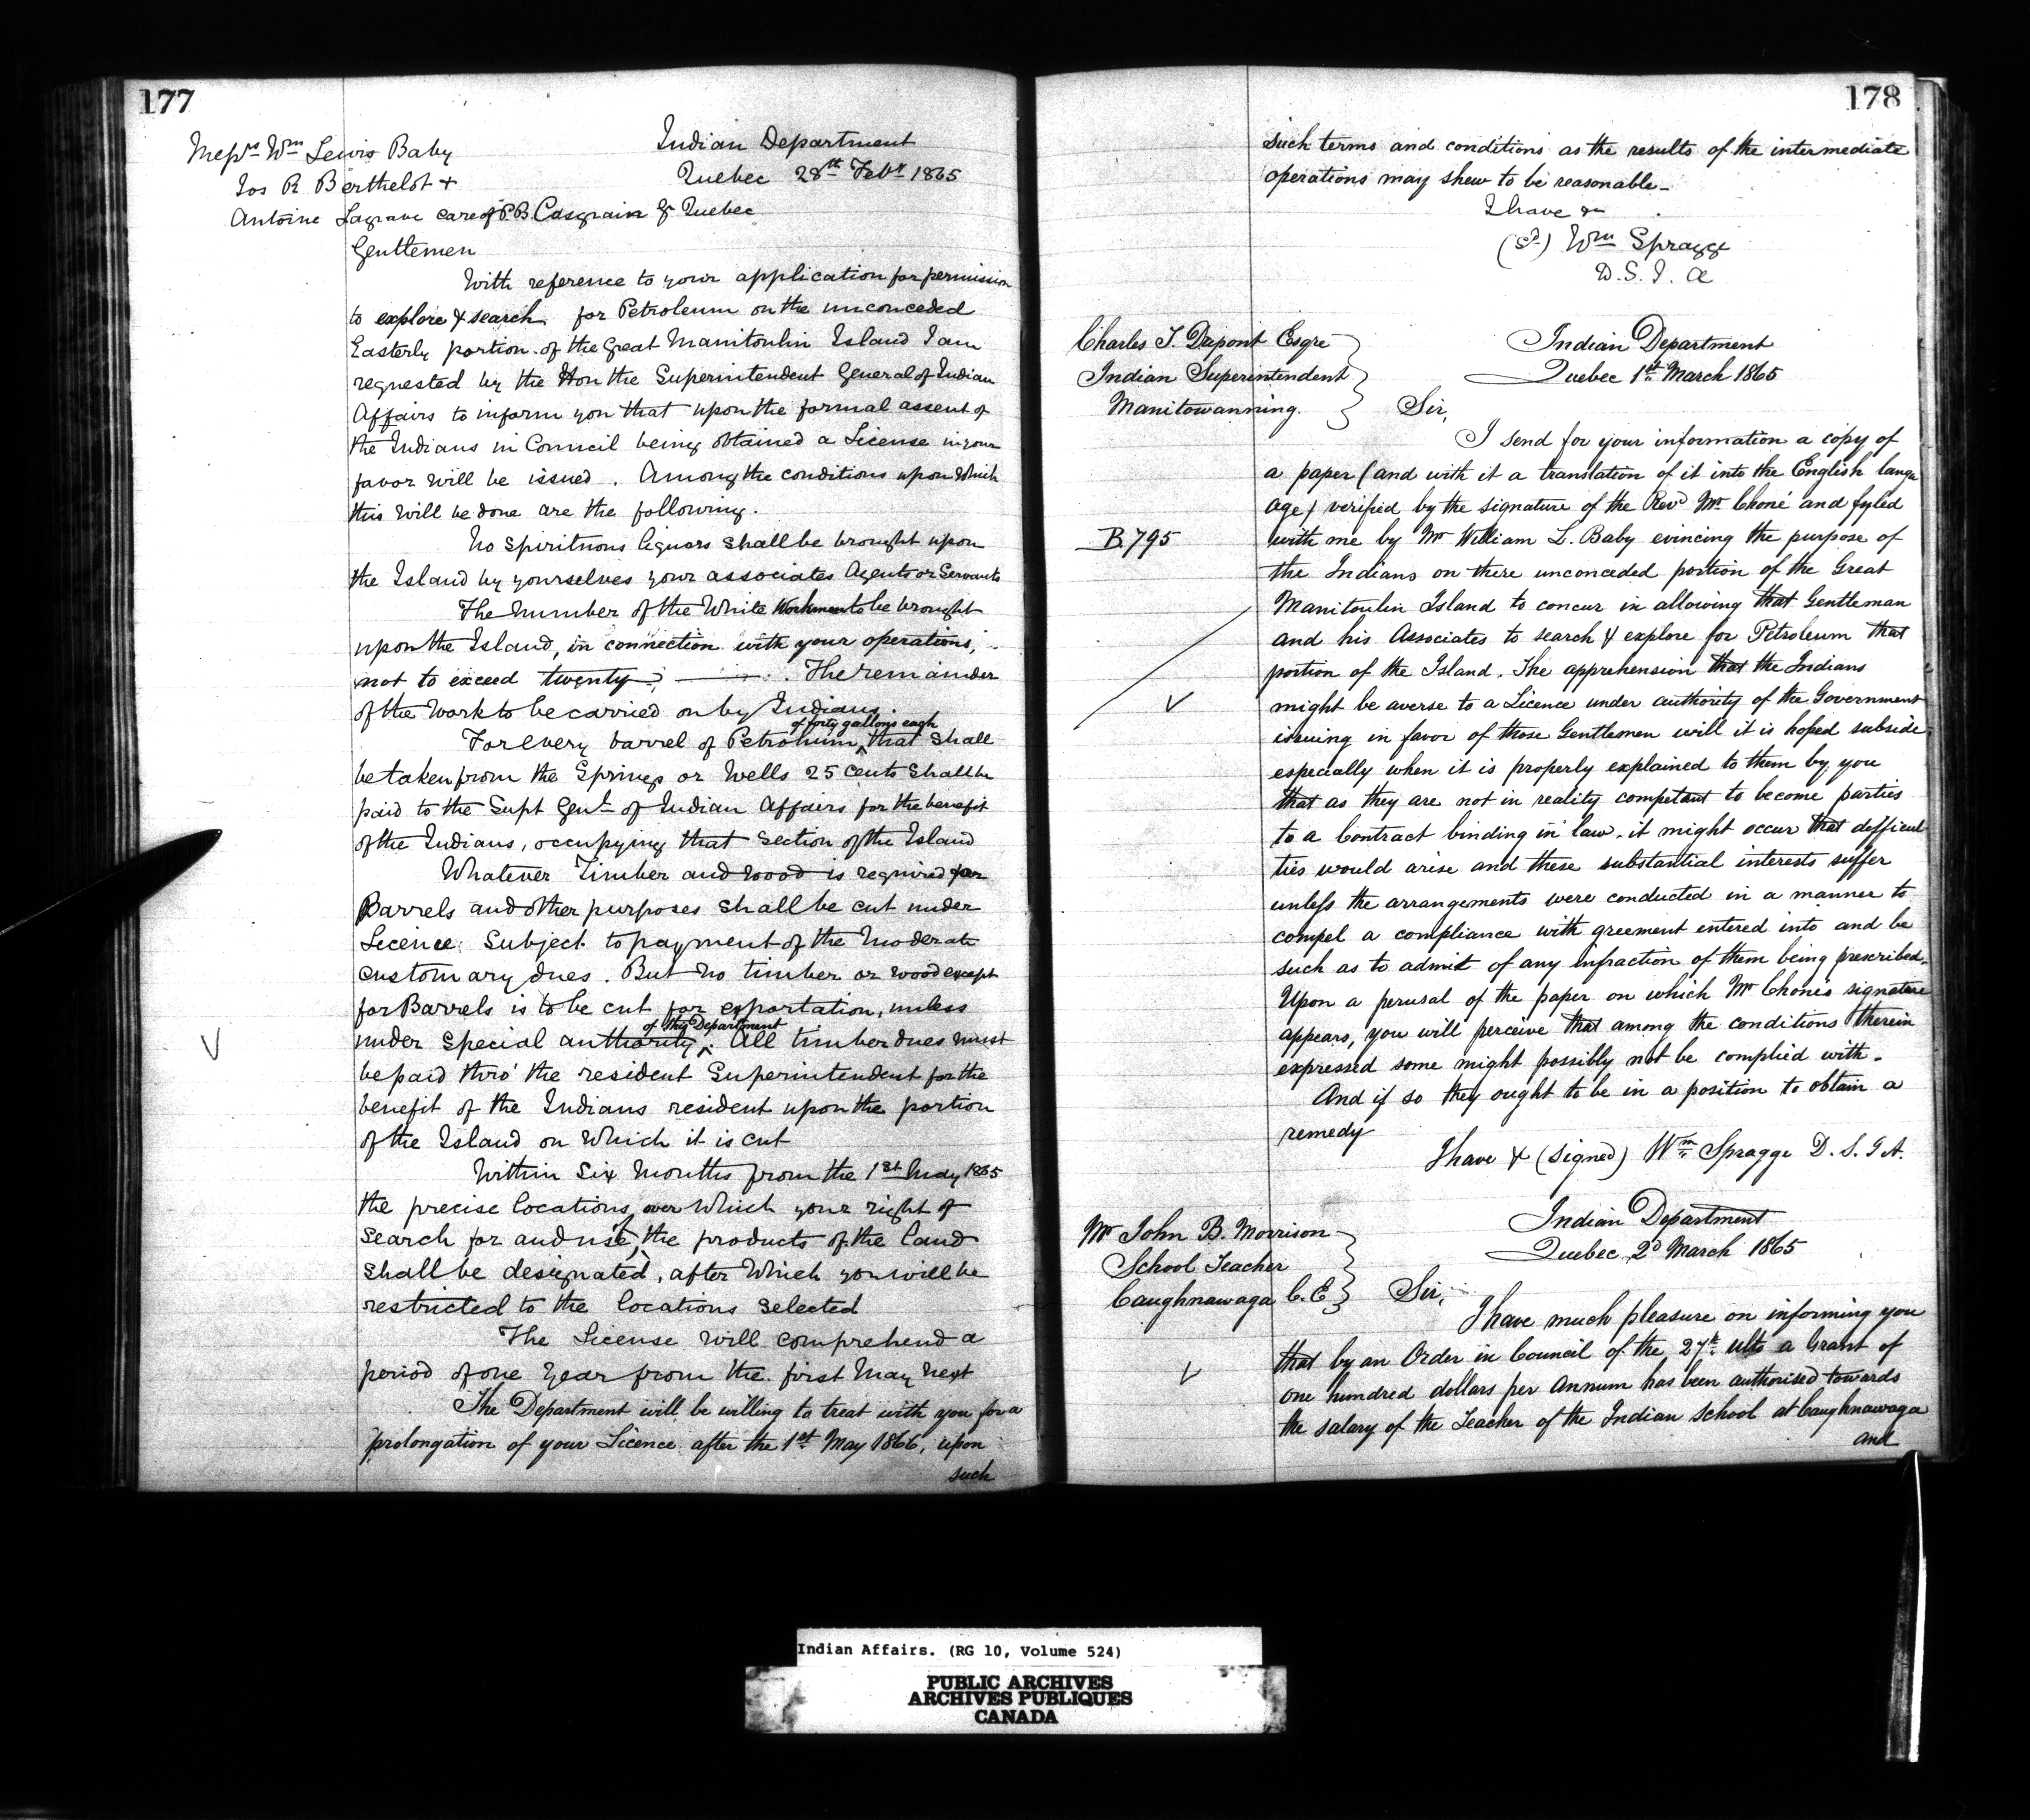 177
Indian Department
Quebec 28th Feby 1865
Messrs Wm Lewis Baby
Jos R Berthelot +
Antoine Lagrave care of P.B. Casgrain Qr Quebec
Gentlemen
With reference to your application for permission
to explore & search for Petroleum on the unconceded
Easterly portion of the Great Manitoulin Island I am
requested by the Hon the Superintendent General of Indian
Affairs to inform you that upon the formal assent of
the Indians in Council being obtained a License in your
favor will be issued. Among the conditions upon which
this will be done are the following.
No Spirituous liquors shall be brought upon
the Island by yourselves your associates Agents or Servants
The number of the White Workmen to be brought
upon the Island, in connection with your operations,
not to exceed twenty; The remainder
of the Work to be carried on by Indians.
of forty gallons each
For every barrel of Petroleum ^ that shall
be taken from the Springs or Wells 25 cents shall be
paid to the Supt Genl of Indian Affairs for the benefit
of the Indians, occupying that section of the Island
Whatever Timber and wood is required for
Barrels and other purposes shall be cut under
Licence Subject to payment of the moderate
customary dues. But no timber or wood except
for Barrels is to be cut for exportation, unless
of this Department
under special authority ^. All timber dues must
be paid thro' the resident Superintendent for the
benefit of the Indians resident upon the portion
of the Island on Which it is cut
Within Six Months from the 1st May 1865
the precise locations, over Which your right of
search for and use of the products of the land
shall be designated, after Which you will be
restricted to the locations selected
The License will comprehend a
period of one year from the first May next
The Department will be willing to treat with you for a
prolongation of your Licence after the 1st May 1866, upon
such
178
such terms and conditions as the results of the intermediate
operations may shew to be reasonable_
I have &c
(Sd) Wm Spragge
D. S. I. A
Charles T. Dupont Esqre
Indian Superintendent
Manitowanning.
Indian Department
Quebec 1st March 1865
Sir,
I send for your information a copy of
a paper (and with it a translation of it into the English langu
age) verified by the signature of the Revd Mr Choné and fyled
B.795
with me by Mr William L. Baby evincing the purpose of
the Indians on there unconceded portion of the Great
Manitoulin Island to concur in allowing that Gentleman
and his Associates to search & explore for Petroleum that
portion of the Island. The apprehension that the Indians
might be averse to a Licence under authority of the Government
issuing in favor of those Gentlemen will it is hoped subside,
especially when it is properly explained to them by you
that as they are not in reality competant to become parties
to a Contract binding in law, it might occur that defficul
ties would arise and these substantial interests suffer
unless the arrangements were conducted in a manner to
compel a compliance with greement entered into and be
such as to admit of any infraction of them being prescribed.
Upon a perusal of the paper on which Mr Choné's signature
appears, you will perceive that among the conditions therein
expressed some might possibly not be complied with.
And if so they ought to be in a position to obtain a
remedy
I have & (signed) Wm Spragge D. S. I A.
Mr John B. Morrison
School Teacher
Caughnawaga C.E
Indian Department
Quebec, 2d March 1865
Sir,
I have much pleasure on informing you
that by an Order in Council of the 27th ulto a Grant of
one hundred dollars per Annum has been authorised towards
the salary of the Teacher of the Indian School at Caughnawaga
and
Indian Affairs. (RG 10, Volume 524)
PUBLIC ARCHIVES
ARCHIVES PUBLIQUES
CANADA